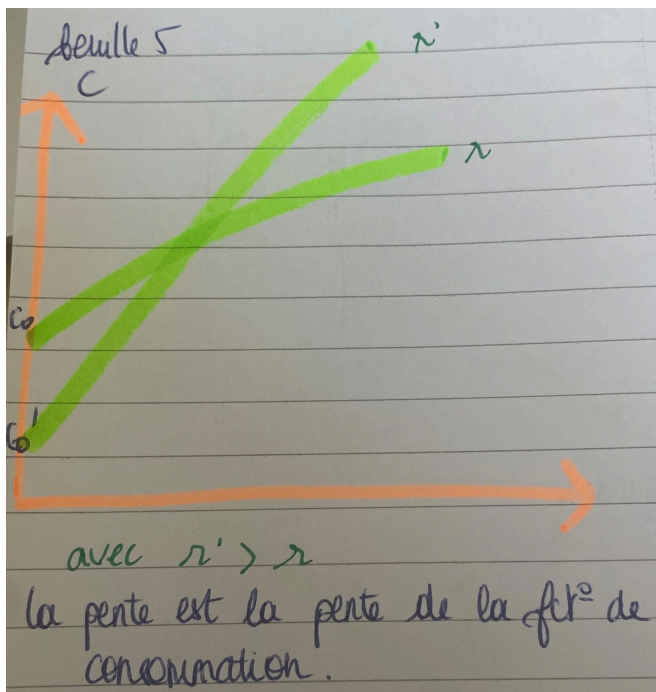 feuille 5
C
r'
r
C0
C0'
avec r' > r
la pente est la pente de la fct° de
consommation.